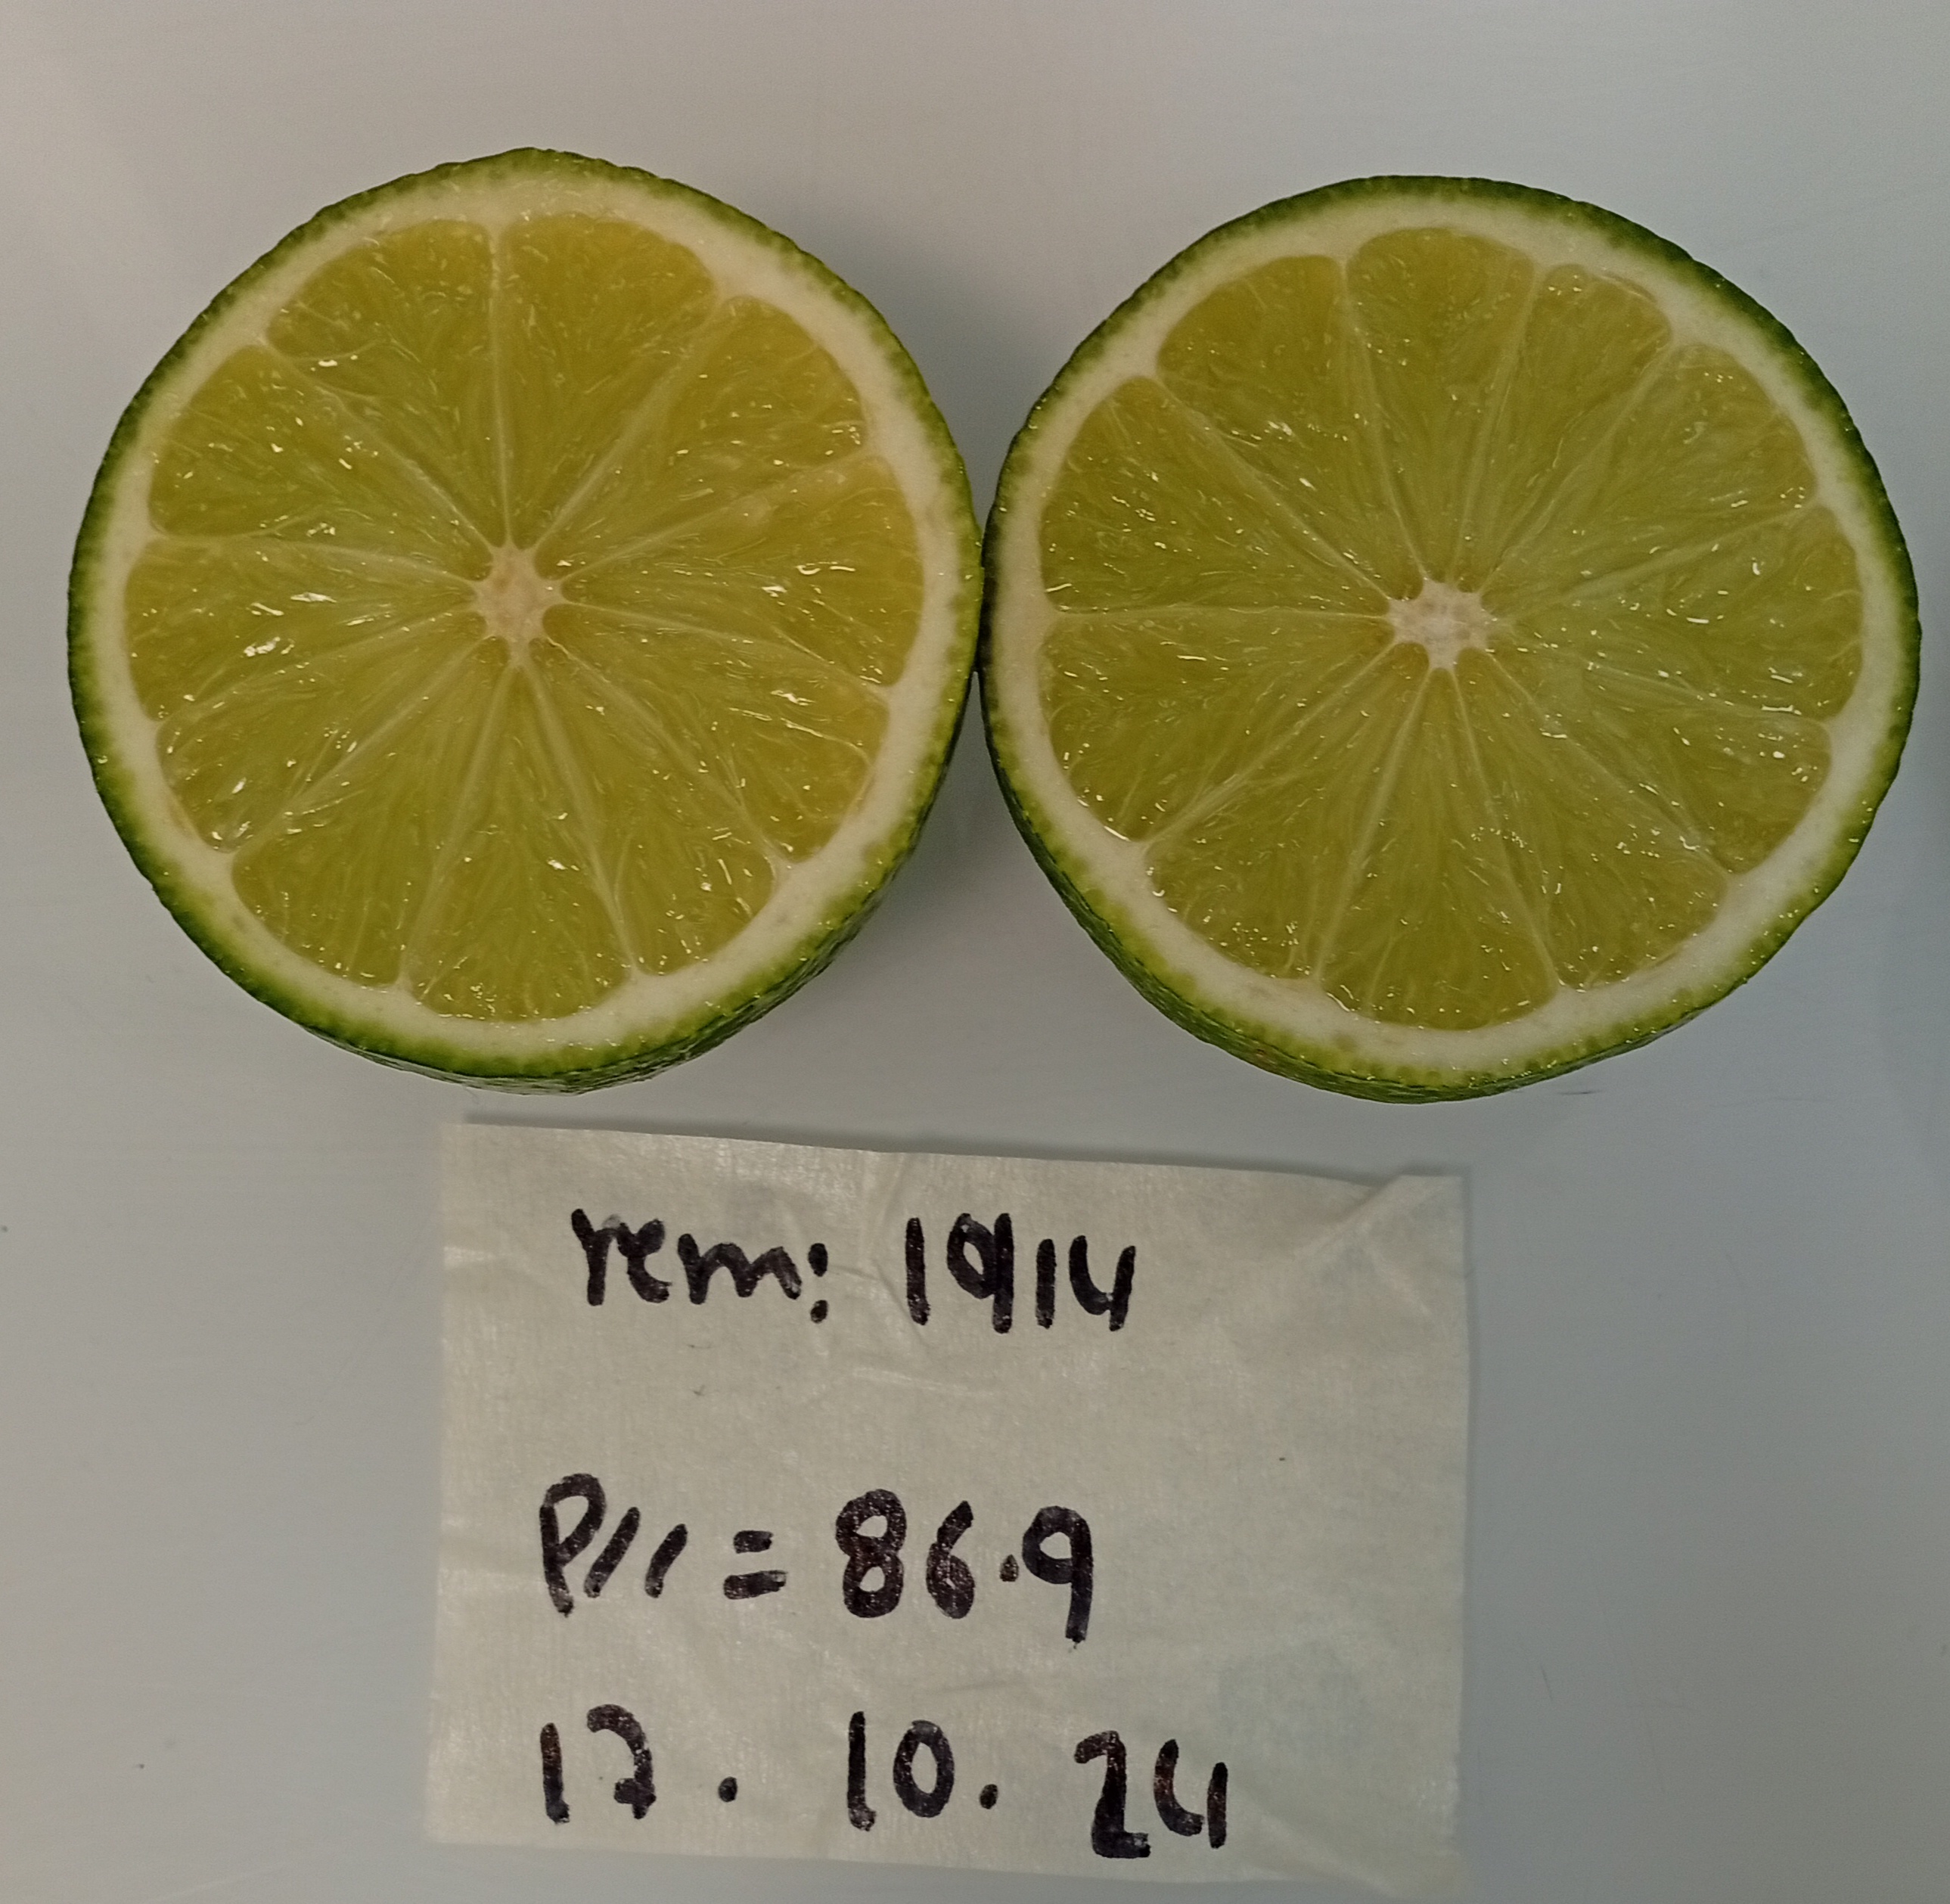 rem: 1914
P11 = 86.9
17. 10. 24